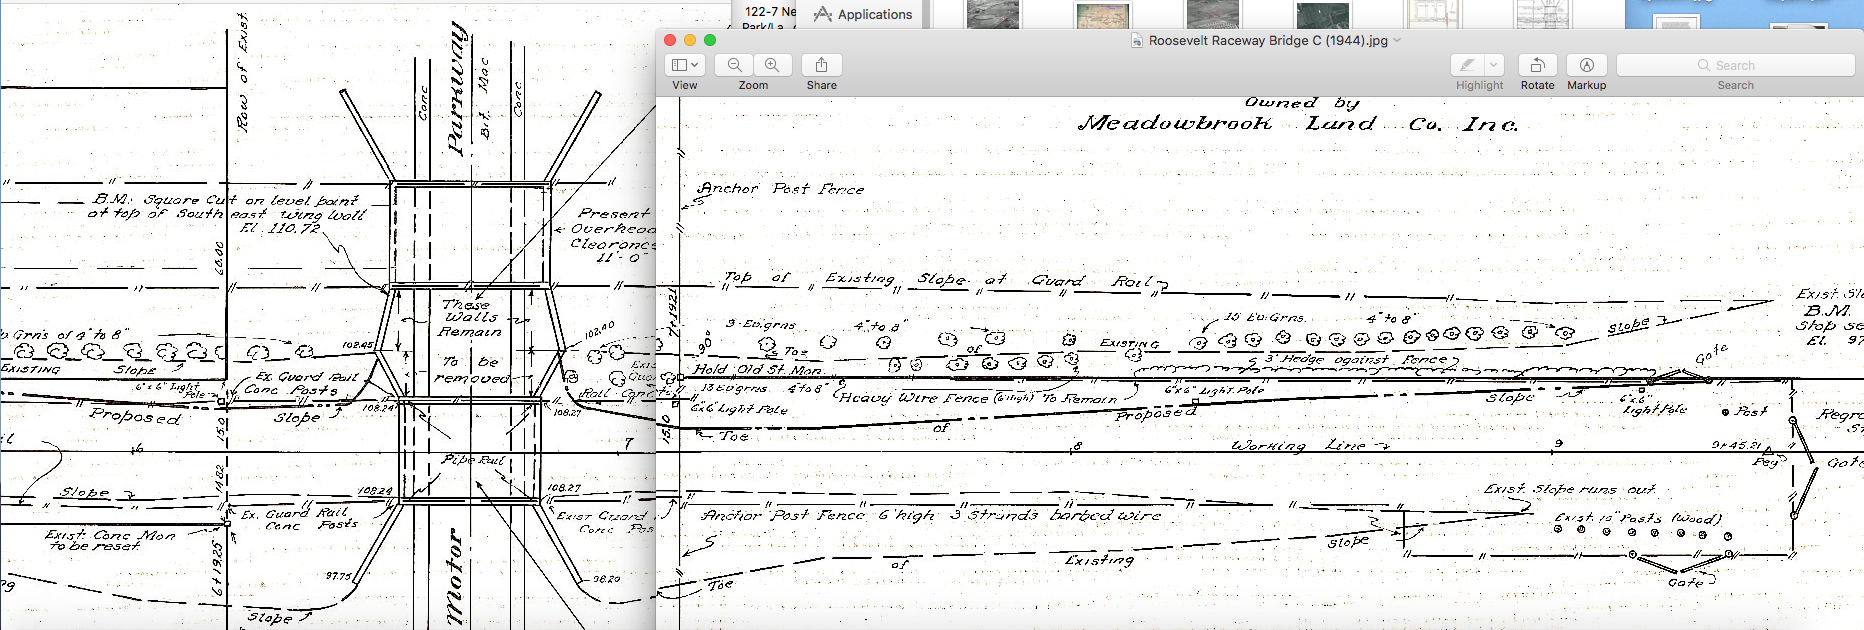 122-7 Ne
Park/La
Applications
Roosevelt Raceway Bridge C (1944).jpg
View
Zoom
Share
Highlight
Rotate
Markup
Search
Search
Row of Exist.
Conc
Parkway
Bit. Mac
Conc
B.M. Square Cut on level point
at top of South east wing wall
El. 110.72
60.00
Present
Overhead
Clearance
11'-0"
These
Walls
Remain
To be
removed
102.40
102.45
Grn's of 4" to 8"
EXISTING
SLOPE
6"x6" Light
Pole
Ex. Guard Rail
Conc Posts
Proposed
Slope
108.24
108.27
15.0
6
7
Pipe Rail
14.82
Slope
108.24
108.27
Ex. Guard Rail
Conc Posts
Exist Guard
Conc Pos
Exist. Conc Mon
to be reset.
6+19.25
97.75
98.20
Motor
Slope
Owned by
Meadowbrook Land Co. Inc.
Anchor Post Fence
Top of Existing Slope at Guard Rail
7+19.21
90°
9-Ev.grns. 4" to 8"
15 Ev.Grns. 4" to 8"
Slope
Exist. Slo
B.M.
Stop se
El. 97
Toe of EXISTING
3' Hedge against Fence
Gate
Hold Old St. Mon.
13 Ev.grns. 4" to 8"
Heavy Wire Fence (6' high) To Remain
6"x6" Light Pole
6"x6" Light Pole
Proposed
Slope
6"x6"
Light Pole
Post
Regra
15.0
Toe
of
8
Working Line
9
9+45.21
Peg
Gate
Exist. Slope runs out.
Anchor Post Fence 6' high 3 Strands barbed wire
Exist. 15" Posts (Wood)
Slope
Toe
of
Existing
Gate